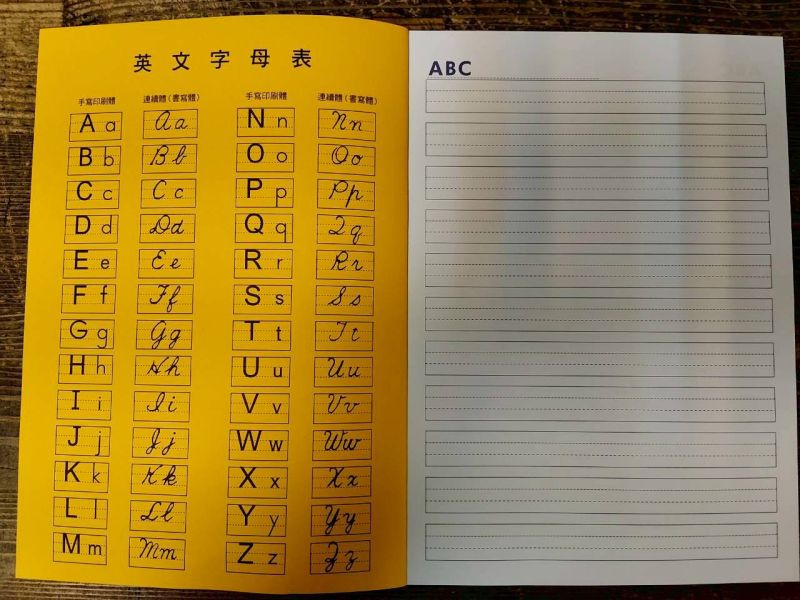 英文字母表
手寫印刷體 連續體(書寫體) 手寫印刷體 連續體(書寫體)
A a A a N n N n
B b B b O o O o
C c C c P p P p
D d D d Q q Q q
E e E e R r R r
F f F f S s S s
G g G g T t T t
H h H h U u U u
I i I i V v V v
J j J j W w W w
K k K k X x X x
L l L l Y y Y y
M m M m Z z Z z
ABC